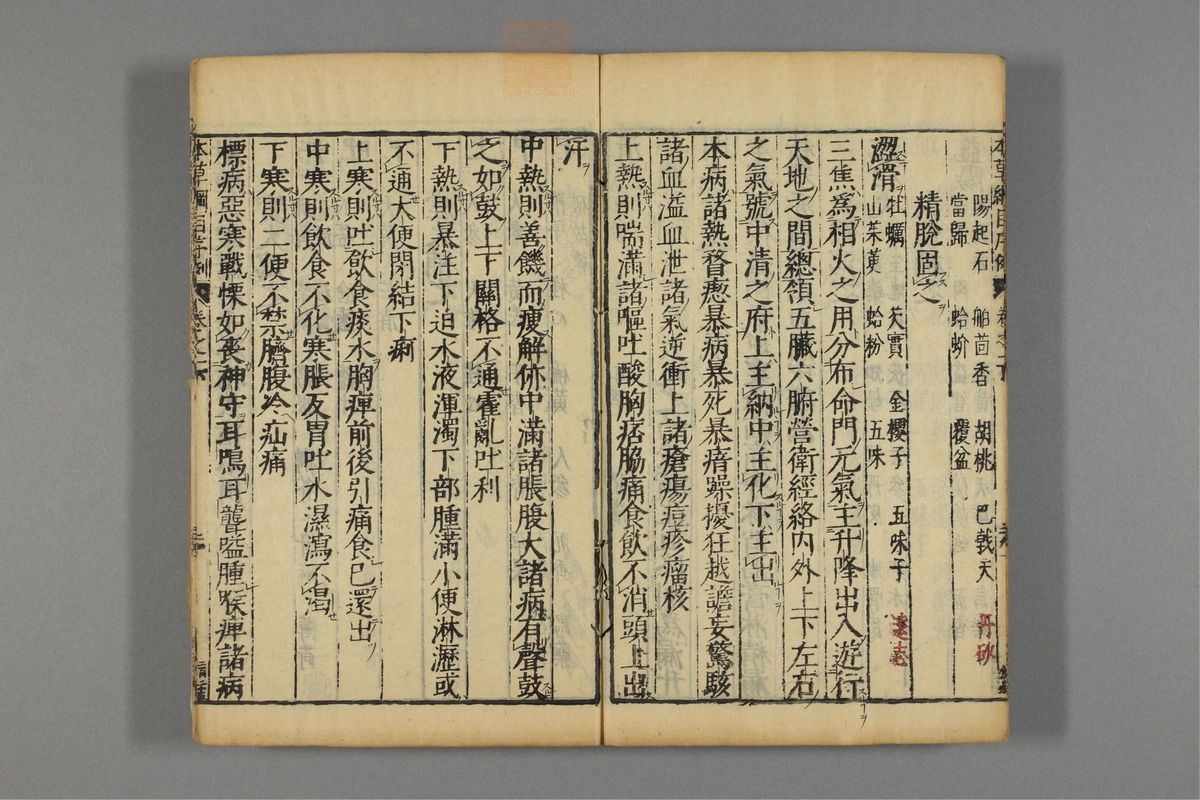 本草綱目序例
陽起石 舶茴香 胡桃 巴戟天 丹砂
當歸 蛤蚧 覆盆
精脫固之
澀滑 牡蠣 芡實 金櫻子 五味子 遠志
山茱萸 蛤粉 五味
三焦爲相火之用分布命門元氣主升降出入遊行
天地之間總領五臟六腑營衛經絡內外上下左右
之氣號中清之府上主納中主化下主出
本病諸熱瞀瘛暴病暴死暴瘖躁擾狂越譫妄驚駭
諸血溢血泄諸氣逆衝上諸瘡瘍痘疹瘤核
上熱則喘滿諸嘔吐酸胸痞脇痛食飲不消頭上出
汗
中熱則善饑而瘦解㑊中滿諸脹腹大諸病有聲鼓
之如鼓上下關格不通霍亂吐利
下熱則暴注下迫水液渾濁下部腫滿小便淋瀝或
不通大便閉結下痢
上寒則吐飲食痰水胸痺前後引痛食已還出
中寒則飲食不化寒脹反胃吐水濕瀉不渴
下寒則二便不禁臍腹冷疝痛
標病惡寒戰慄如喪神守耳鳴耳聾嗌腫喉痺諸病
本草綱目序例